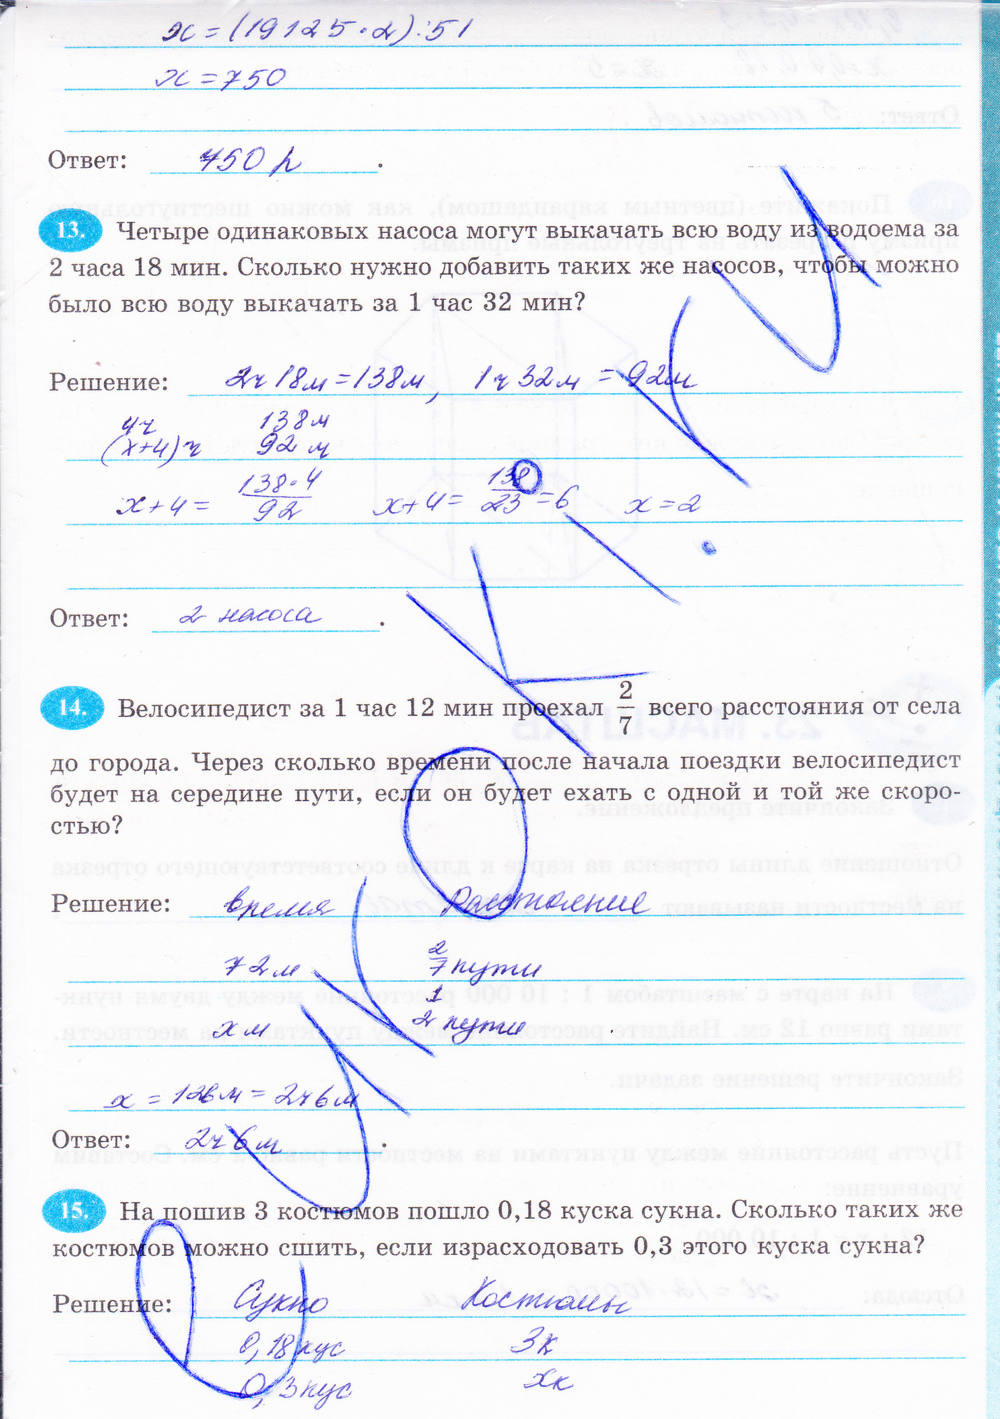 x = (19125·2):51
x = 750
Ответ: 750 р.
13. Четыре одинаковых насоса могут выкачать всю воду из водоема за
2 часа 18 мин. Сколько нужно добавить таких же насосов, чтобы можно
было всю воду выкачать за 1 час 32 мин?
Решение: 2ч 18м = 138м, 1ч 32м = 92м
4ч 138м
(x+4)ч 92 м
x+4 = 138·4/92 x+4 = 138/23 = 6 x = 2
Ответ: 2 насоса.
14. Велосипедист за 1 час 12 мин проехал 2/7 всего расстояния от села
до города. Через сколько времени после начала поездки велосипедист
будет на середине пути, если он будет ехать с одной и той же скоро-
стью?
Решение: время Расстояние
72м 2/7 пути
x м 1/2 пути
x = 126м = 2ч6м
Ответ: 2ч 6м.
15. На пошив 3 костюмов пошло 0,18 куска сукна. Сколько таких же
костюмов можно сшить, если израсходовать 0,3 этого куска сукна?
Решение: Сукно Костюмы
0,18 кус 3к
0,3 кус xк